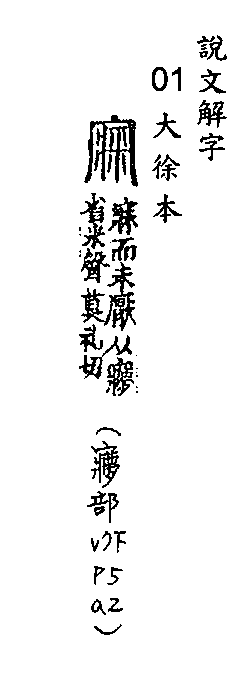 說文解字
01 大徐本
㝥
寐而未厭从㝱
省米聲莫礼切
(㝱部 v7下 P5 a2)